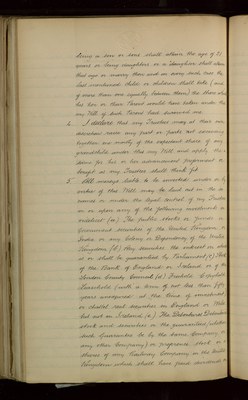 being a son or sons shall attain the age of 21
years or being daughters or a daughter shall attain
that age or marry then and in every such case the
last mentioned child or children shall take (and
if more than one equally between them) the share which
his her or their Parent would have taken under this
my Will if such Parent had survived me.
4. I declare that my Trustees may at their
discretion raise any part or parts not exceeding
together one moiety of the expectant share of any
grandchild under this my Will and apply the
same for his or her advancement preferment or
benefit as my Trustees shall think fit.
5. All moneys liable to be invested under
this Will may be laid out in the
names or under the legal control of my Trustees
in or upon any of the following investments
(a) The public stocks or funds or
Government securities of the United Kingdom
India or any Colony or Dependency of the United
Kingdom (b) Any securities the interest on which
is or shall be guaranteed by Parliament (c) Stock
of the Bank of England or Ireland or of the
London County Council (d) Freehold Copyhold
Leasehold (with a term of not less than fifty
years unexpired at the time of investment)
or chattel real securities in England or Wales
but not in Ireland (e) The Debentures Debenture
stock and securities or the guaranteed (whether
such Guarantee be by the same Company or
any other Company) or preference stock or
shares of any Railway Company in the United
Kingdom which shall have paid dividends